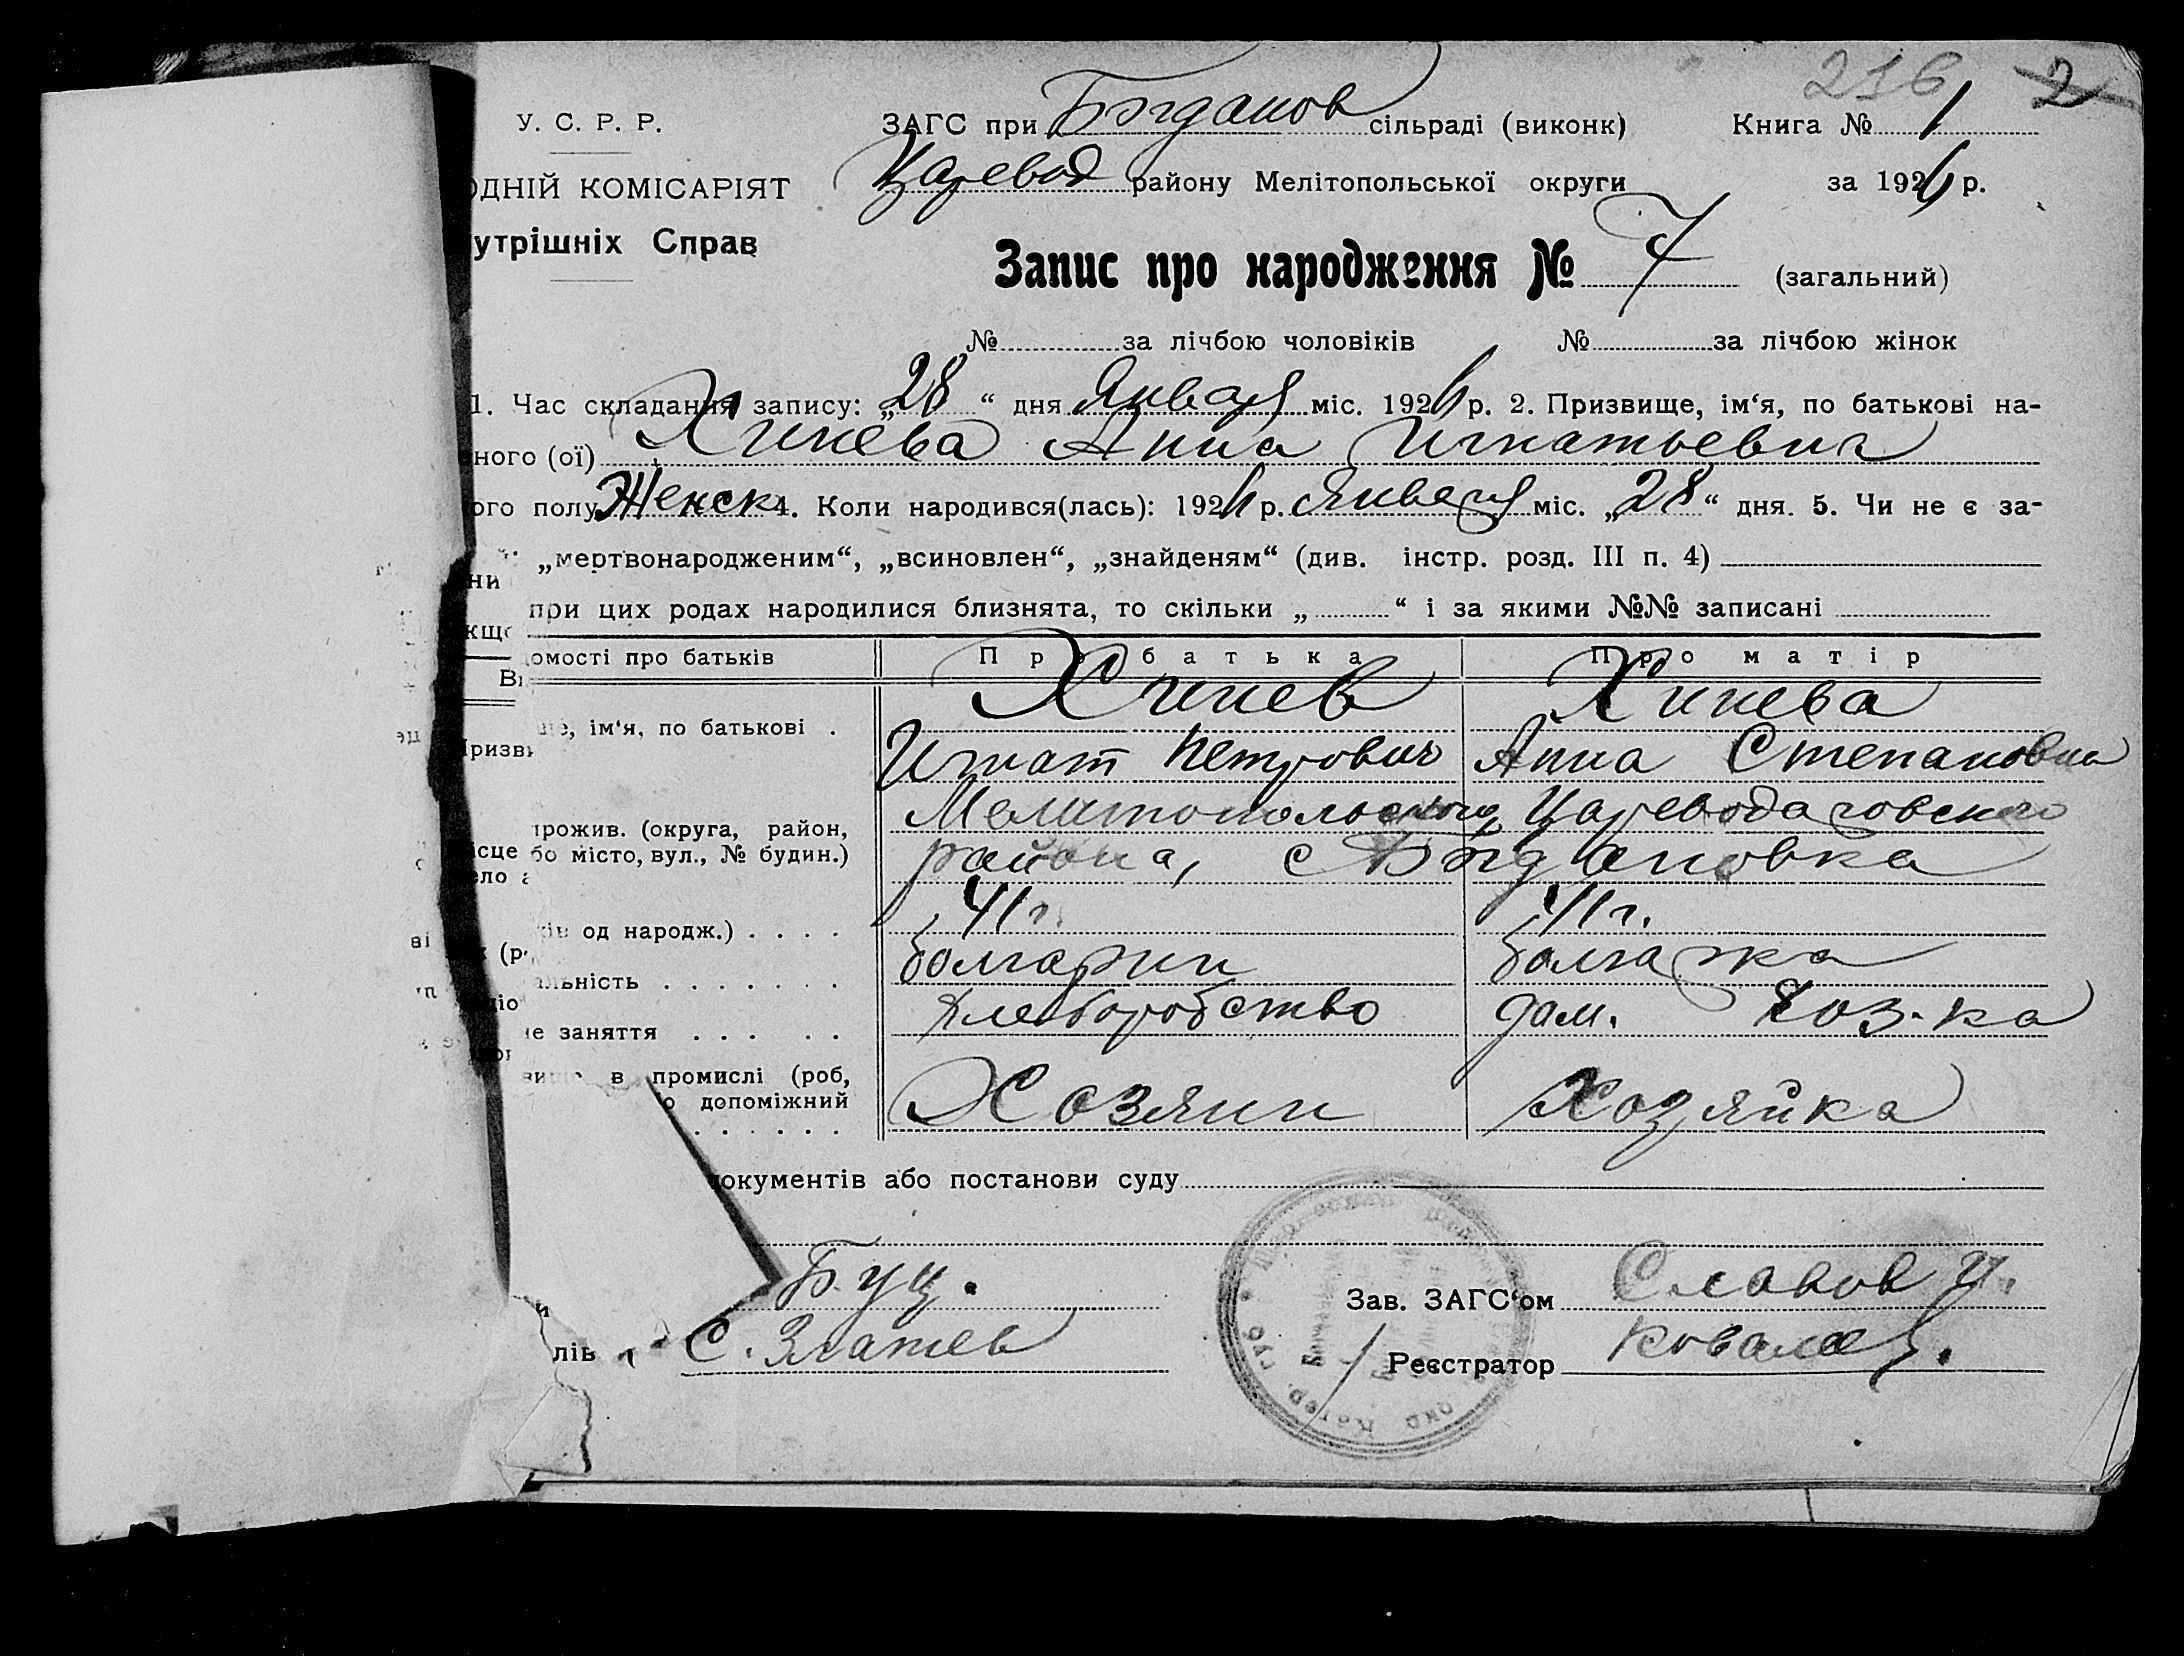 216 2
У. С. Р. Р.
ЗАГС при Богданов сільраді (виконк) Книга № 1
ОДНІЙ КОМІСАРІЯТ
Царевод району Мелітопольської округи за 1926 р.
утрішніх Справ
Запис про народження № 7 (загальний)
№ за лічбою чоловіків № за лічбою жінок
1. Час складання запису: „28“ дня Января міс. 1926 р. 2. Призвище, ім‘я, по батькові на-
ного (ої) Хинева Анна Игнатьевич
ого полу Женск 4. Коли народився(лась): 1926 р. Января міс. „28“ дня. 5. Чи не є за-
„мертвонародженим“, „всиновлен“, „знайденям“ (див. інстр. розд. III п. 4)
ни
при цих родах народилися близнята, то скільки „ “ і за якими №№ записані
кщо
омості про батьків Про батька Про матір
Ві
Хинев Хинева
ще, ім‘я, по батькові .
Призви
Игнат Петрович Анна Степановна
Мелитопольского Цареводаровского
прожив. (округа, район,
ісце бо місто, вул., № будин.)
ело а
района, с Богдановка
ків од народж.) . . . . 41 г. 41 г.
к (р
альність . . . . . . . болгарин болгарка
ціо
не заняття . . . . . Хлеборобство дом. хоз-ка
вище в промислі (роб,
о допоміжний
. . . . . . Хозяин Хозяйка
документів або постанови суду
Буц.
Зав. ЗАГС‘ом Славов И.
лів С. Златев
Реєстратор Ковалев.